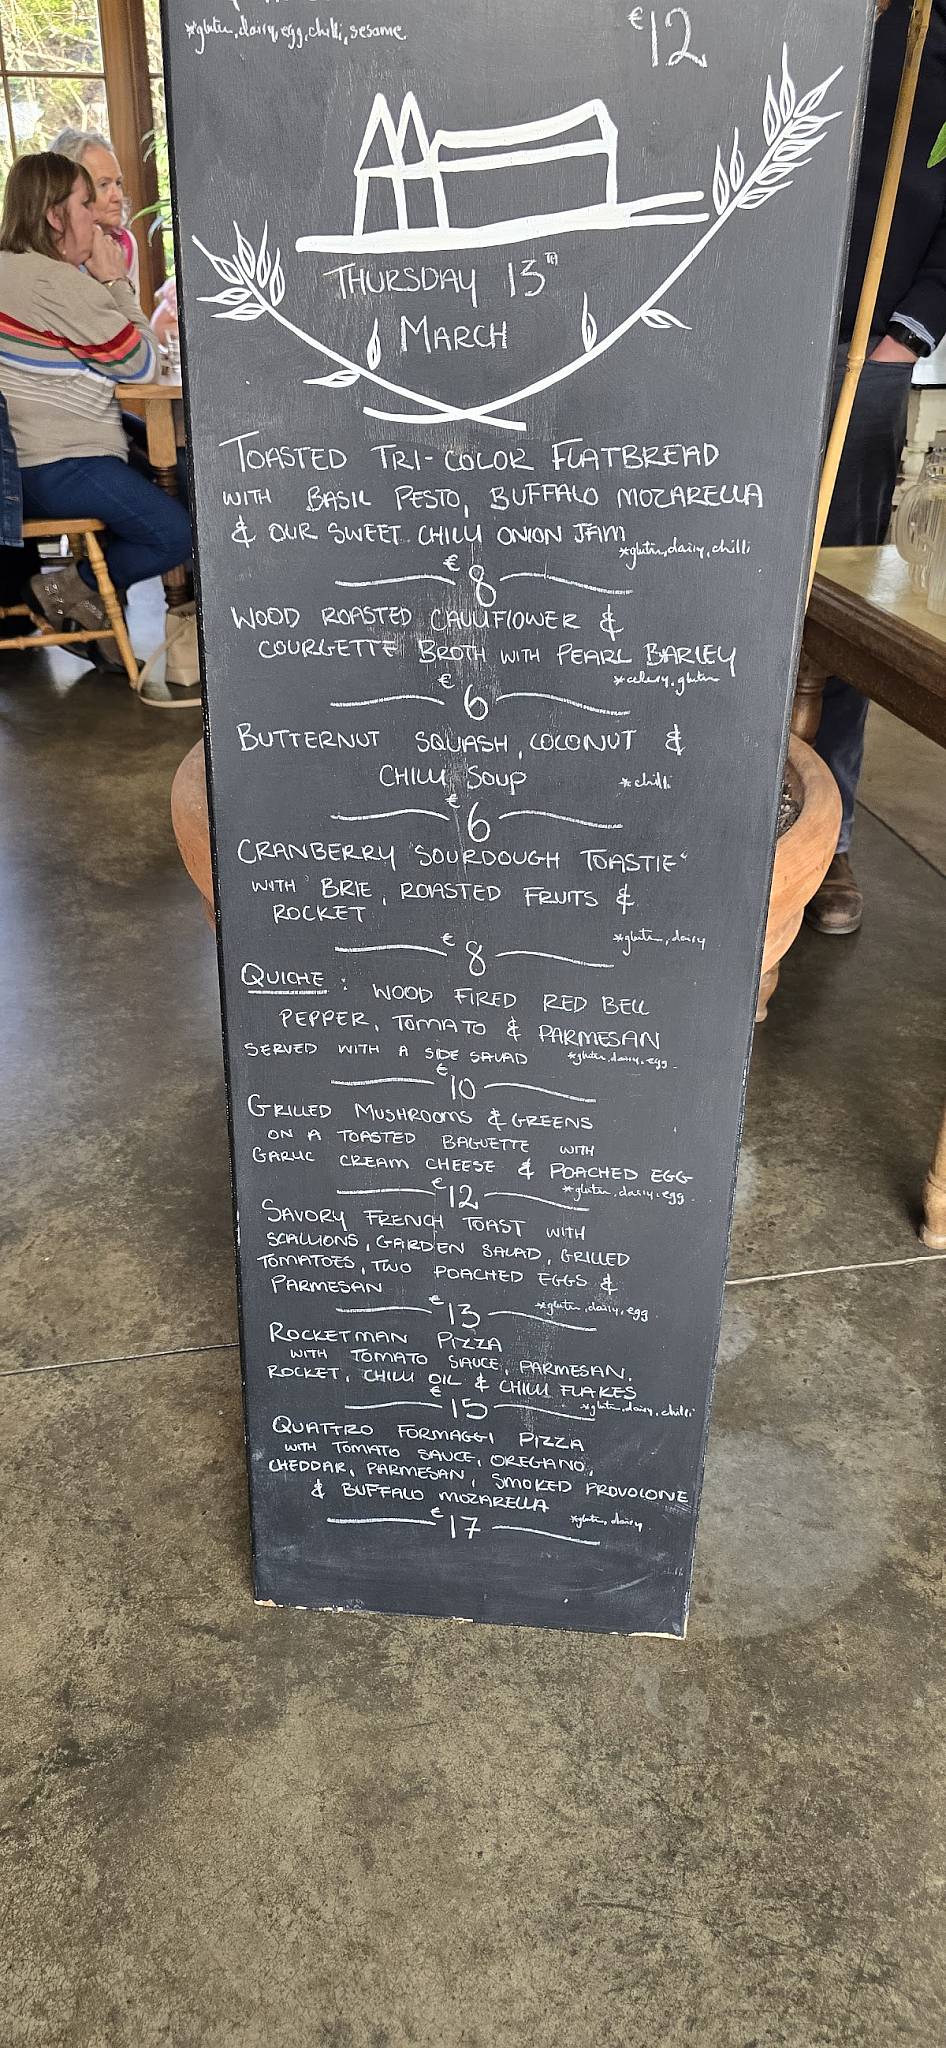 *gluten, dairy, egg, chilli, sesame
€12
THURSDAY 13TH
MARCH
TOASTED TRI-COLOR FLATBREAD
WITH BASIL PESTO, BUFFALO MOZARELLA
& OUR SWEET CHILLI ONION JAM
*gluten, dairy, chilli
€8
WOOD ROASTED CAULIFLOWER &
COURGETTE BROTH WITH PEARL BARLEY
*celery, gluten
€6
BUTTERNUT SQUASH, COCONUT &
CHILLI SOUP *chilli
€6
CRANBERRY "SOURDOUGH TOASTIE"
WITH BRIE, ROASTED FRUITS &
ROCKET
*gluten, dairy
€8
QUICHE: WOOD FIRED RED BELL
PEPPER, TOMATO & PARMESAN
SERVED WITH A SIDE SALAD *gluten, dairy, egg
€10
GRILLED MUSHROOMS & GREENS
ON A TOASTED BAGUETTE WITH
GARLIC CREAM CHEESE & POACHED EGG
€12 *gluten, dairy, egg
SAVORY FRENCH TOAST WITH
SCALLIONS, GARDEN SALAD, GRILLED
TOMATOES, TWO POACHED EGGS &
PARMESAN
€13 *gluten, dairy, egg
ROCKETMAN PIZZA
WITH TOMATO SAUCE, PARMESAN,
ROCKET, CHILLI OIL & CHILLI FLAKES
€15 *gluten, dairy, chilli
QUATTRO FORMAGGI PIZZA
WITH TOMATO SAUCE, OREGANO,
CHEDDAR, PARMESAN, SMOKED PROVOLONE
& BUFFALO MOZARELLA
€17 *gluten, dairy